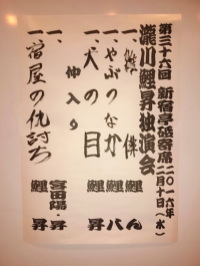 第三十六回 新宿亭砥寄席 二〇一六年二月十日(水)
瀧川鯉昇独演会
一、俥 ん
一、やぶのなか 鯉八
一、犬の目 鯉昇
仲入り
一、 宮田陽・昇
一、宿屋の仇討ち 鯉昇